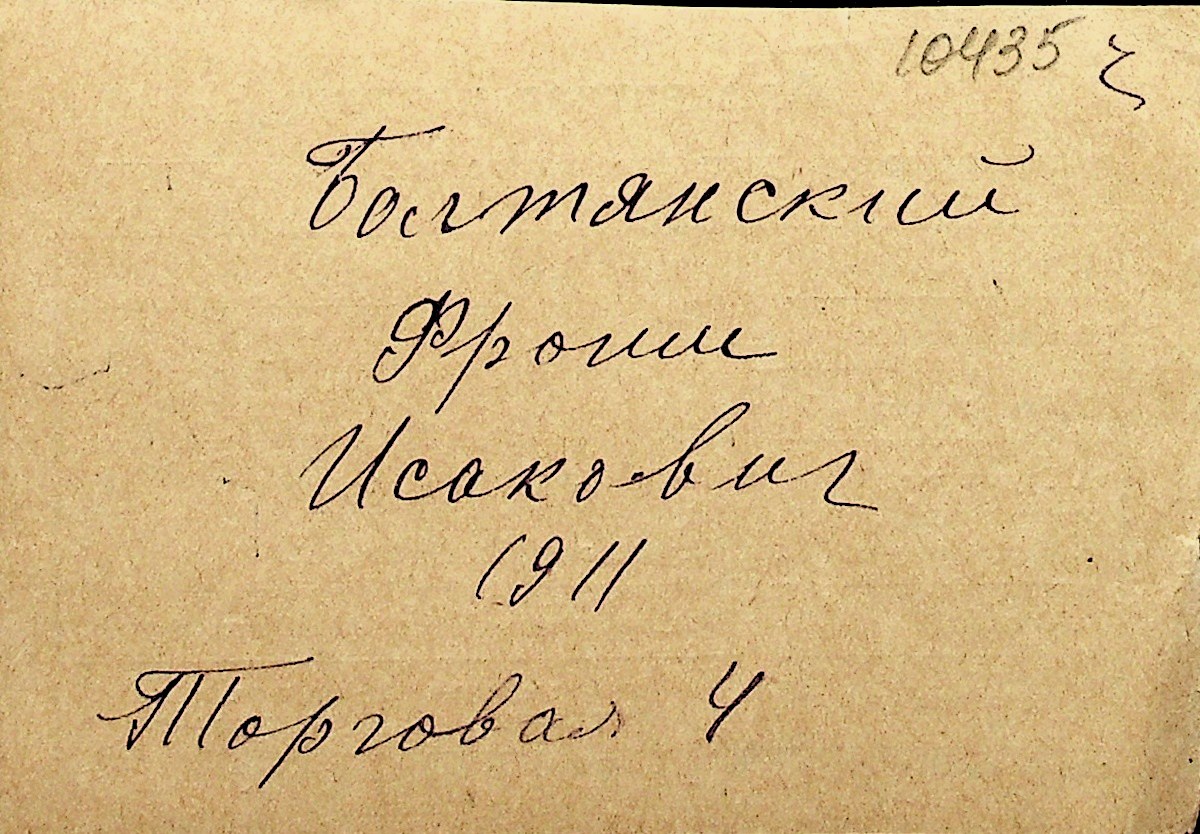 10435
Болтянский
Фроим
Исакович
1911
Торговая 4